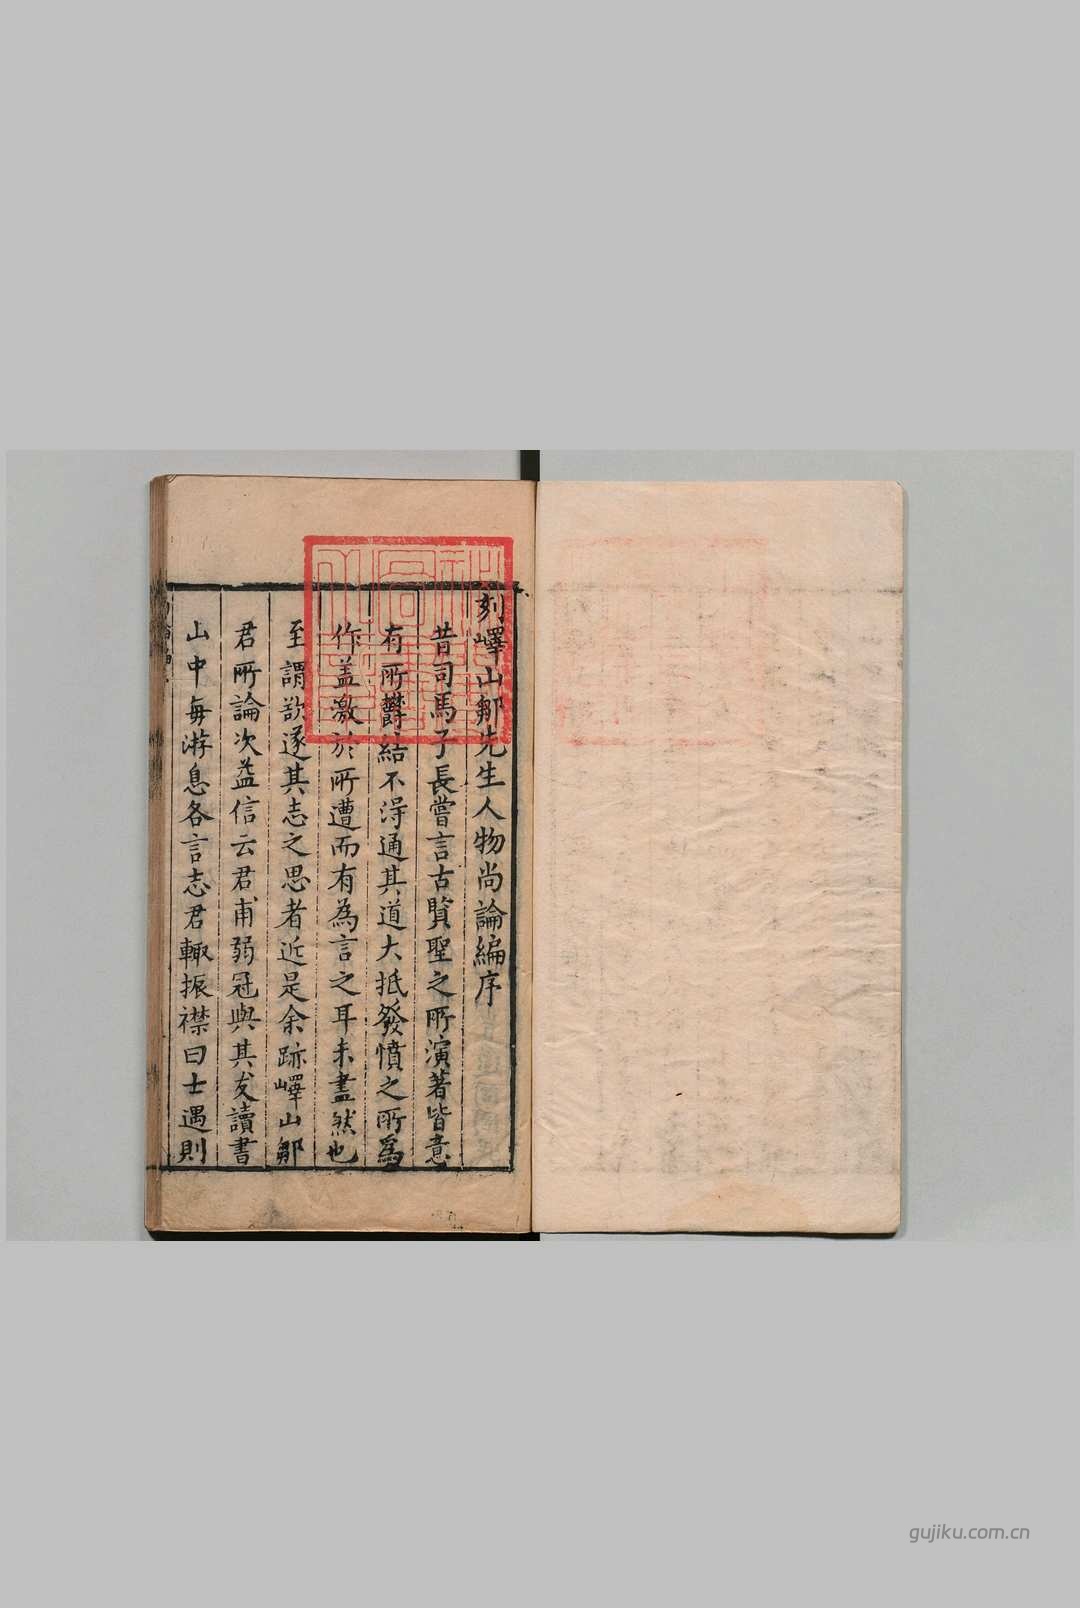 刻嶧山鄒先生人物尚論編序
昔司馬子長嘗言古賢聖之所演著皆意
有所鬱結不得通其道大抵發憤之所為
作盖激於所遭而有為言之耳未盡然也
至謂欲遂其志之思者近是余跡嶧山鄒
君所論次益信云君甫弱冠與其友讀書
山中每游息各言志君輙振襟曰士遇則
gujiku.com.cn